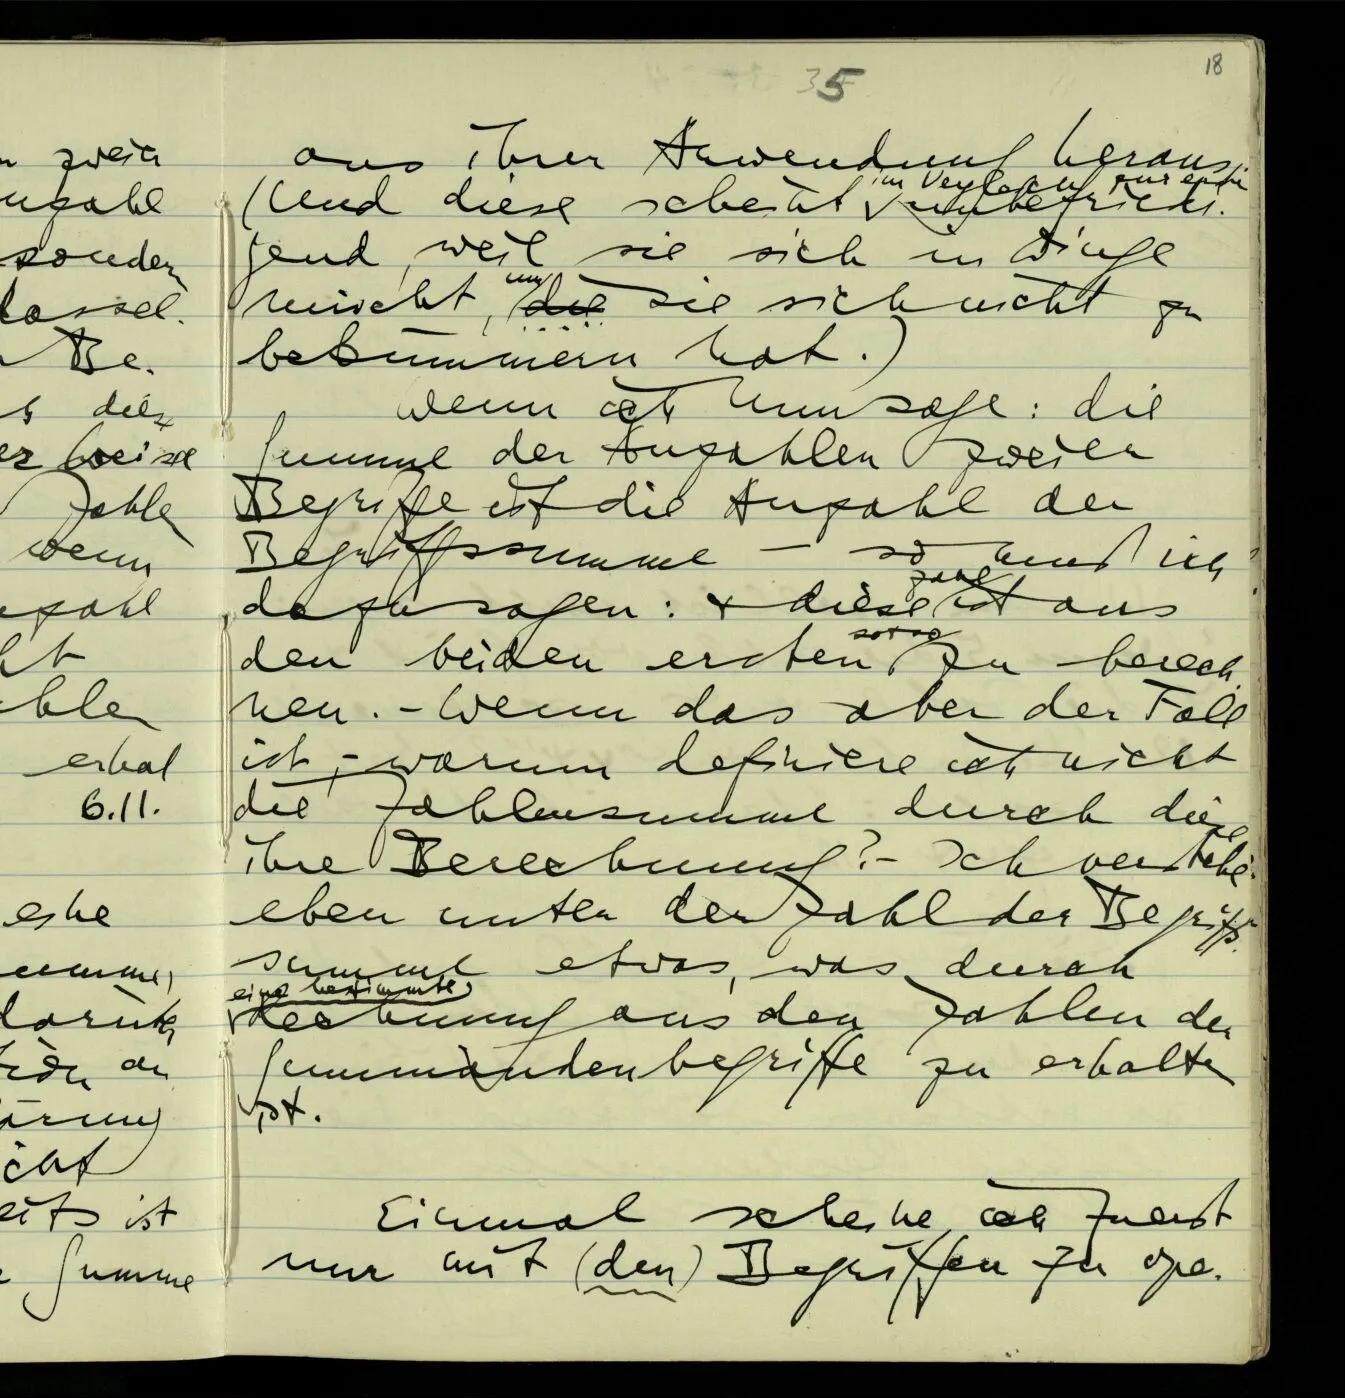 18
35
n zweier
nzahl
sondern
lassel.
Be.
s die
er weise
Zahle
wenn
nzahl
ht
ahlen
erhal
6.11.
ehe
umme,
ion an
ärung
icht
eits ist
r Summe
aus ihrer Anwendung heraus.
im Vergleich zur ersten
(Und diese scheint unbefriedi.
gend, weil sie sich in Dinge
um
mischt, die sie sich nicht zu
bekümmern hat.)
Wenn ich nun sage: die
Summe der Anzahlen zweier
Begriffe ist die Anzahl der
Begriffssumme – so muß ich
zahl
dazu sagen: & diese ist aus
sozusg
den beiden ersten zu berech
nen. – Wenn das aber der Fall
ist, – warum definiere ich nicht
die Zahlensumme durch die
ihre Berechnung? – Ich verstehe
eben unter der Zahl der Begriffs
summe etwas, was durch
eine bestimmte
Rechnung aus den Zahlen der
Summandenbegriffe zu erhalten
ist.
Einmal scheine ich zuerst
nur mit (den) Begriffen zu ope.